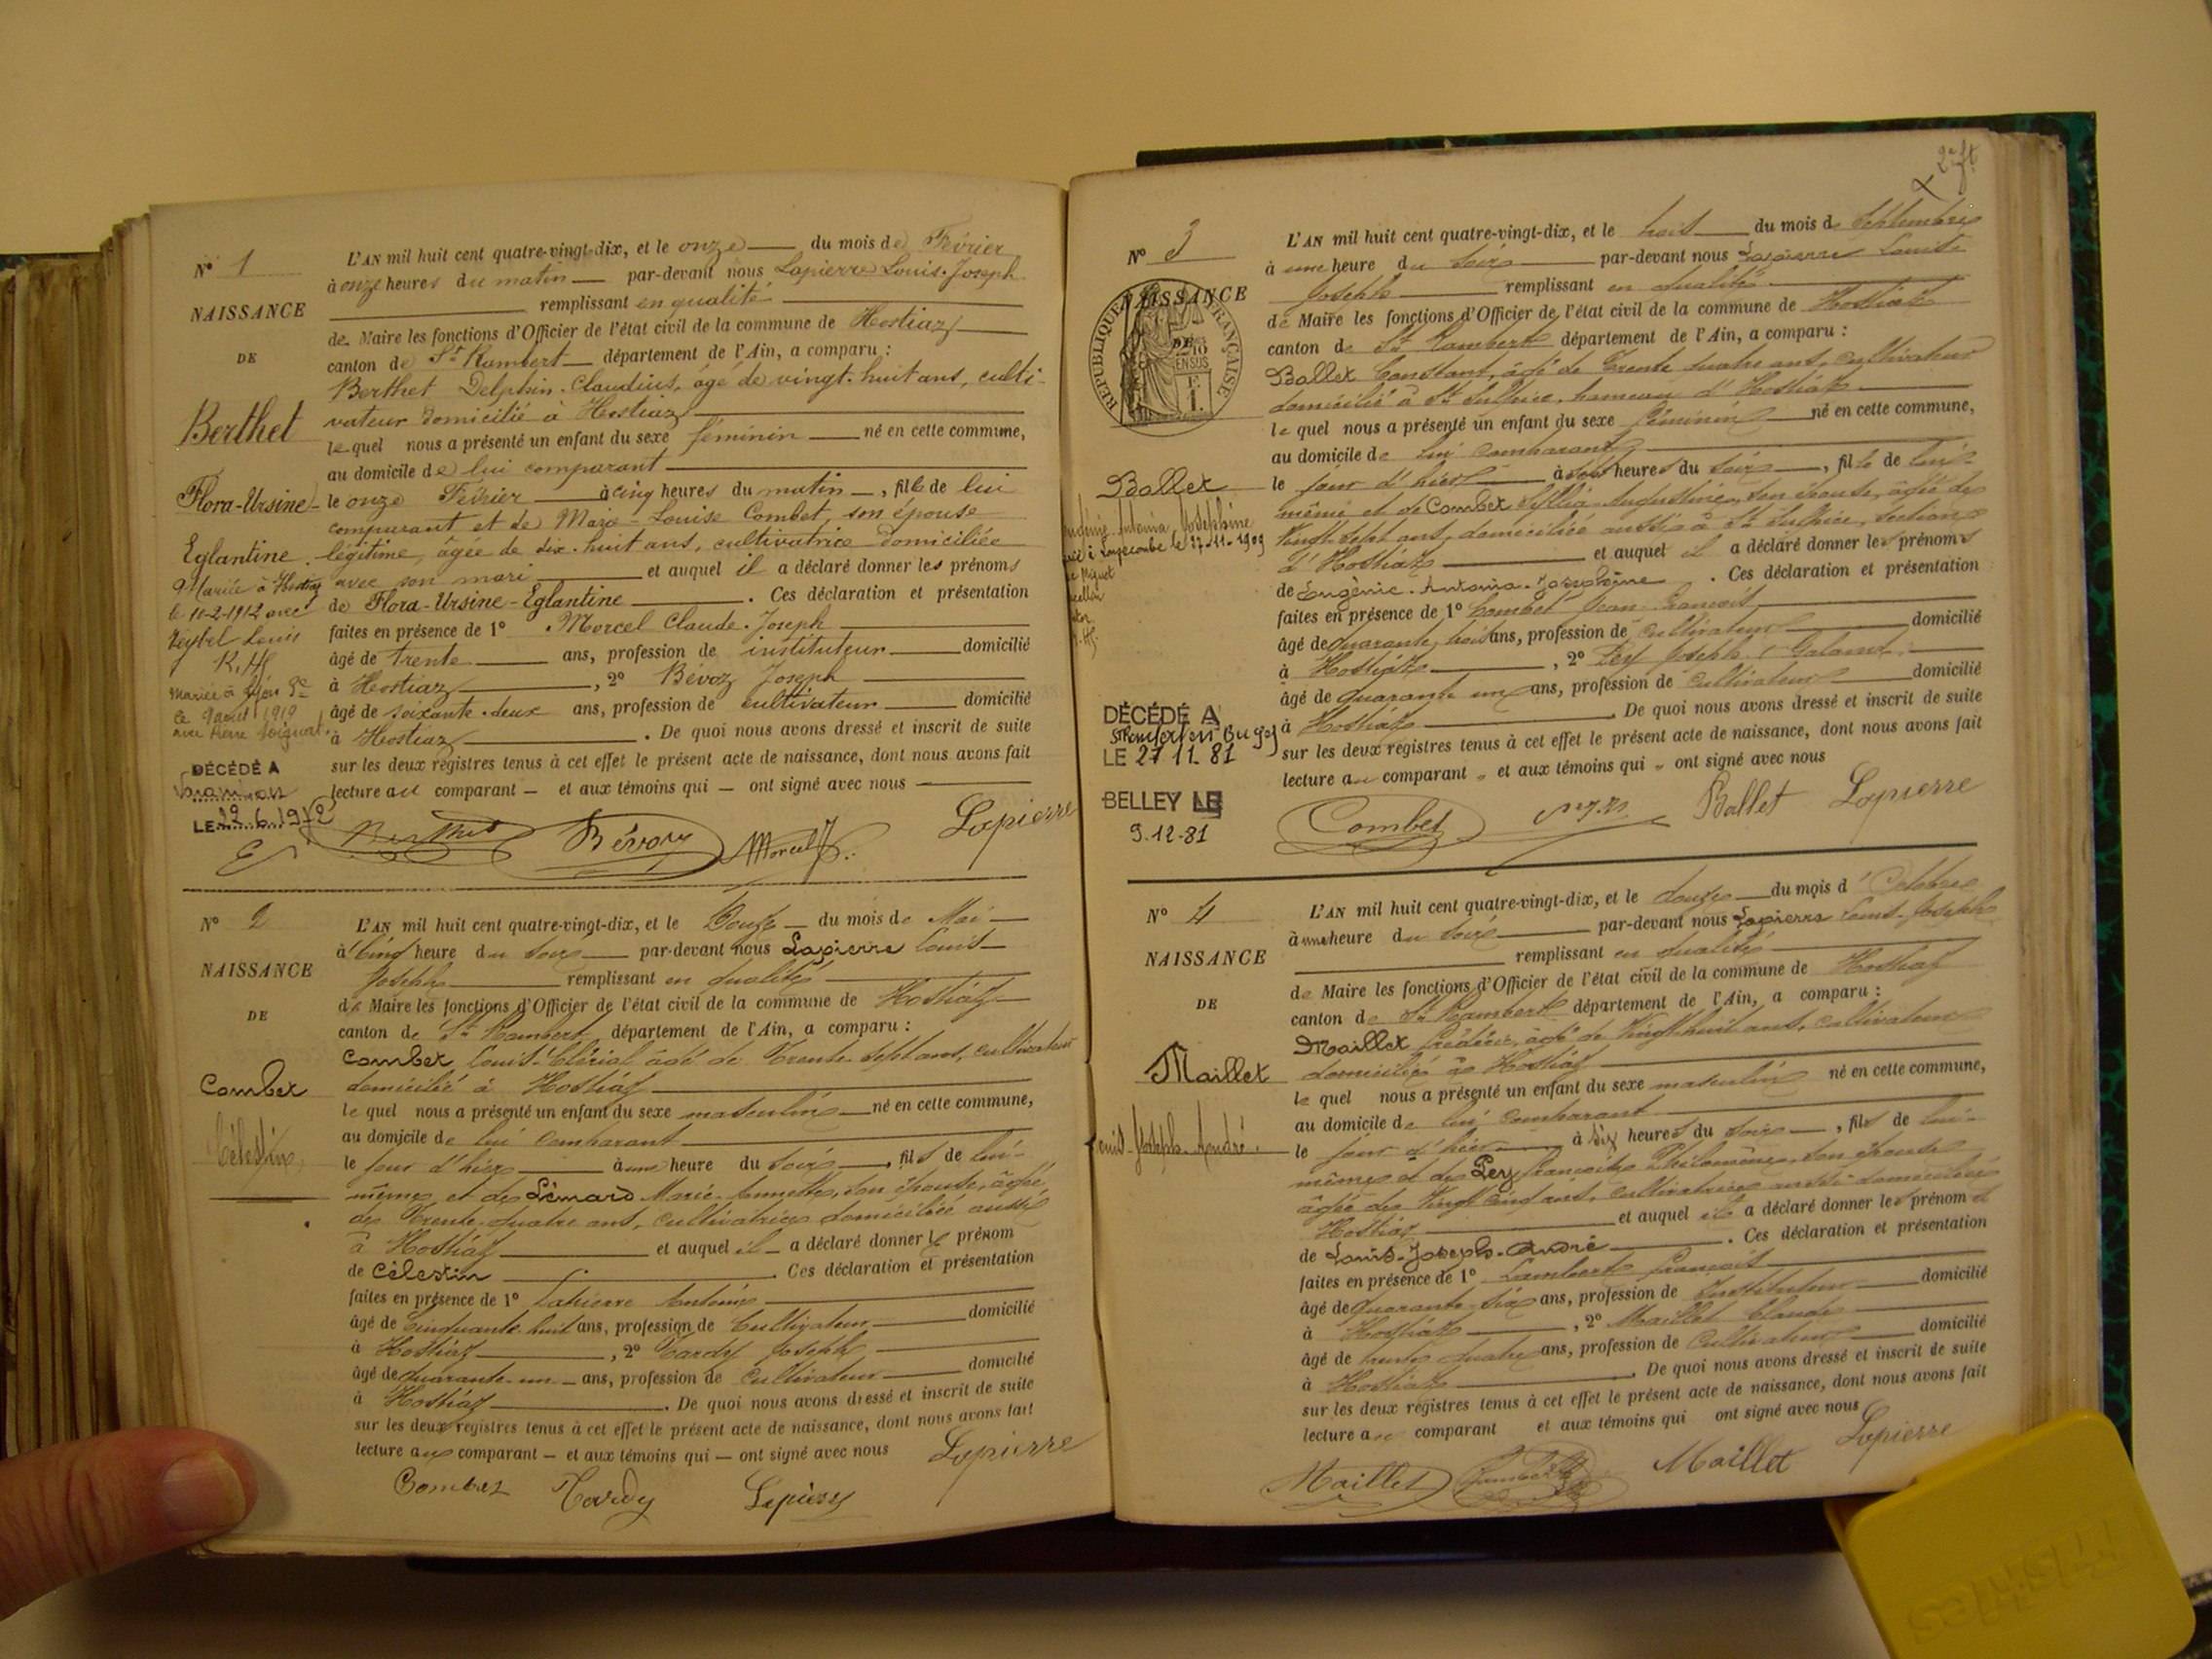 N° 1
NAISSANCE
DE
Berthet
Flora-Ursine-
Eglantine.
Mariée à Hostiaz
le 10-2-1912 avec
Louis
Mariée à
le 9 août 1919
avec Pierre
DÉCÉDÉ A
LE 12.6.1972
L'AN mil huit cent quatre-vingt-dix, et le onze du mois de Février
à onze heures du matin par-devant nous Lapierre Louis-Joseph
remplissant en qualité
de Maire les fonctions d'Officier de l'état civil de la commune de Hostiaz
canton de St Rambert département de l'Ain, a comparu :
Berthet Delphin-Claudius, âgé de vingt-huit ans, culti-
vateur domicilié à Hostiaz
lequel nous a présenté un enfant du sexe féminin né en cette commune,
au domicile de lui comparant
le onze Février à cinq heures du matin, fille de lui
comparant et de Marie-Louise Combet, son épouse
légitime, âgée de dix-huit ans, cultivatrice domiciliée
avec son mari et auquel il a déclaré donner les prénoms
de Flora-Ursine-Eglantine. Ces déclaration et présentation
faites en présence de 1° Morcel Claude-Joseph
âgé de trente ans, profession de instituteur domicilié
à Hostiaz, 2° Bévoz Joseph
âgé de soixante-deux ans, profession de cultivateur domicilié
à Hostiaz. De quoi nous avons dressé et inscrit de suite
sur les deux registres tenus à cet effet le présent acte de naissance, dont nous avons fait
lecture au comparant – et aux témoins qui – ont signé avec nous
Berthet Bévoz Morcel Lapierre
N° 2
NAISSANCE
DE
Combet
Célestin
L'AN mil huit cent quatre-vingt-dix, et le Douze du mois de Mai
à Cinq heure du soir par-devant nous Lapierre Louis-
Joseph remplissant en qualité
de Maire les fonctions d'Officier de l'état civil de la commune de Hostiaz
canton de St Rambert département de l'Ain, a comparu :
Combet Louis âgé de Trente-sept ans, cultivateur
domicilié à Hostiaz
lequel nous a présenté un enfant du sexe masculin né en cette commune,
au domicile de lui comparant
le jour d'hier à une heure du soir, fils de lui-
même et de Lémard Marie-Annette, son épouse, âgée
de Trente-quatre ans, cultivatrice domiciliée aussi
à Hostiaz et auquel il a déclaré donner le prénom
de Célestin. Ces déclaration et présentation
faites en présence de 1° Lapierre Antoine
âgé de Cinquante-huit ans, profession de Cultivateur domicilié
à Hostiaz, 2° Tardy Joseph
âgé de quarante-un ans, profession de Cultivateur domicilié
à Hostiaz. De quoi nous avons dressé et inscrit de suite
sur les deux registres tenus à cet effet le présent acte de naissance, dont nous avons fait
lecture au comparant – et aux témoins qui – ont signé avec nous
Combet Tardy Lapierre Lapierre
2e ft
N° 3
NAISSANCE
DE
RÉPUBLIQUE FRANÇAISE
Ballet
Eugénie-Antonia-Joséphine
le 27-11-1909
DÉCÉDÉ A
St Rambert en Bugey
LE 27 11 81
BELLEY LE
9.12.81
L'AN mil huit cent quatre-vingt-dix, et le trois du mois de Septembre
à une heure du soir par-devant nous Lapierre Louis
Joseph remplissant en qualité
de Maire les fonctions d'Officier de l'état civil de la commune de Hostiaz
canton de St Rambert département de l'Ain, a comparu :
Ballet Constant, âgé de Trente quatre ans, cultivateur
domicilié à St Sulpice, hameau d'Hostiaz
lequel nous a présenté un enfant du sexe féminin né en cette commune,
au domicile de lui comparant
le jour d'hier à heures du soir, fille de lui-
même et de Combet Augustine, son épouse, âgée de
Vingt-sept ans, domiciliée aussi à St Sulpice, section
d'Hostiaz et auquel il a déclaré donner les prénoms
de Eugénie-Antonia-Joséphine. Ces déclaration et présentation
faites en présence de 1° Combet Jean-François
âgé de quarante trois ans, profession de Cultivateur domicilié
à Hostiaz, 2° Pey Joseph
âgé de quarante un ans, profession de Cultivateur domicilié
à Hostiaz. De quoi nous avons dressé et inscrit de suite
sur les deux registres tenus à cet effet le présent acte de naissance, dont nous avons fait
lecture au comparant et aux témoins qui ont signé avec nous
Combet Ballet Lapierre
N° 4
NAISSANCE
DE
Maillet
Louis-Joseph-André.
L'AN mil huit cent quatre-vingt-dix, et le douze du mois d'Octobre
à une heure du soir par-devant nous Lapierre Louis-Joseph
remplissant en qualité
de Maire les fonctions d'Officier de l'état civil de la commune de Hostiaz
canton de St Rambert département de l'Ain, a comparu :
Maillet Frédéric, âgé de Vingt-huit ans, cultivateur
domicilié à Hostiaz
lequel nous a présenté un enfant du sexe masculin né en cette commune,
au domicile de lui comparant
le jour d'hier à six heures du soir, fils de lui-
même et de Pey Françoise Philomène, son épouse
âgée de Vingt cinq ans, cultivatrice aussi domiciliée
Hostiaz et auquel il a déclaré donner les prénoms
de Louis-Joseph-André. Ces déclaration et présentation
faites en présence de 1° Lambert François
âgé de quarante-six ans, profession de Instituteur domicilié
à Hostiaz, 2° Maillet Claude
âgé de trente quatre ans, profession de Cultivateur domicilié
à Hostiaz. De quoi nous avons dressé et inscrit de suite
sur les deux registres tenus à cet effet le présent acte de naissance, dont nous avons fait
lecture au comparant et aux témoins qui ont signé avec nous
Maillet Lambert Maillet Lapierre